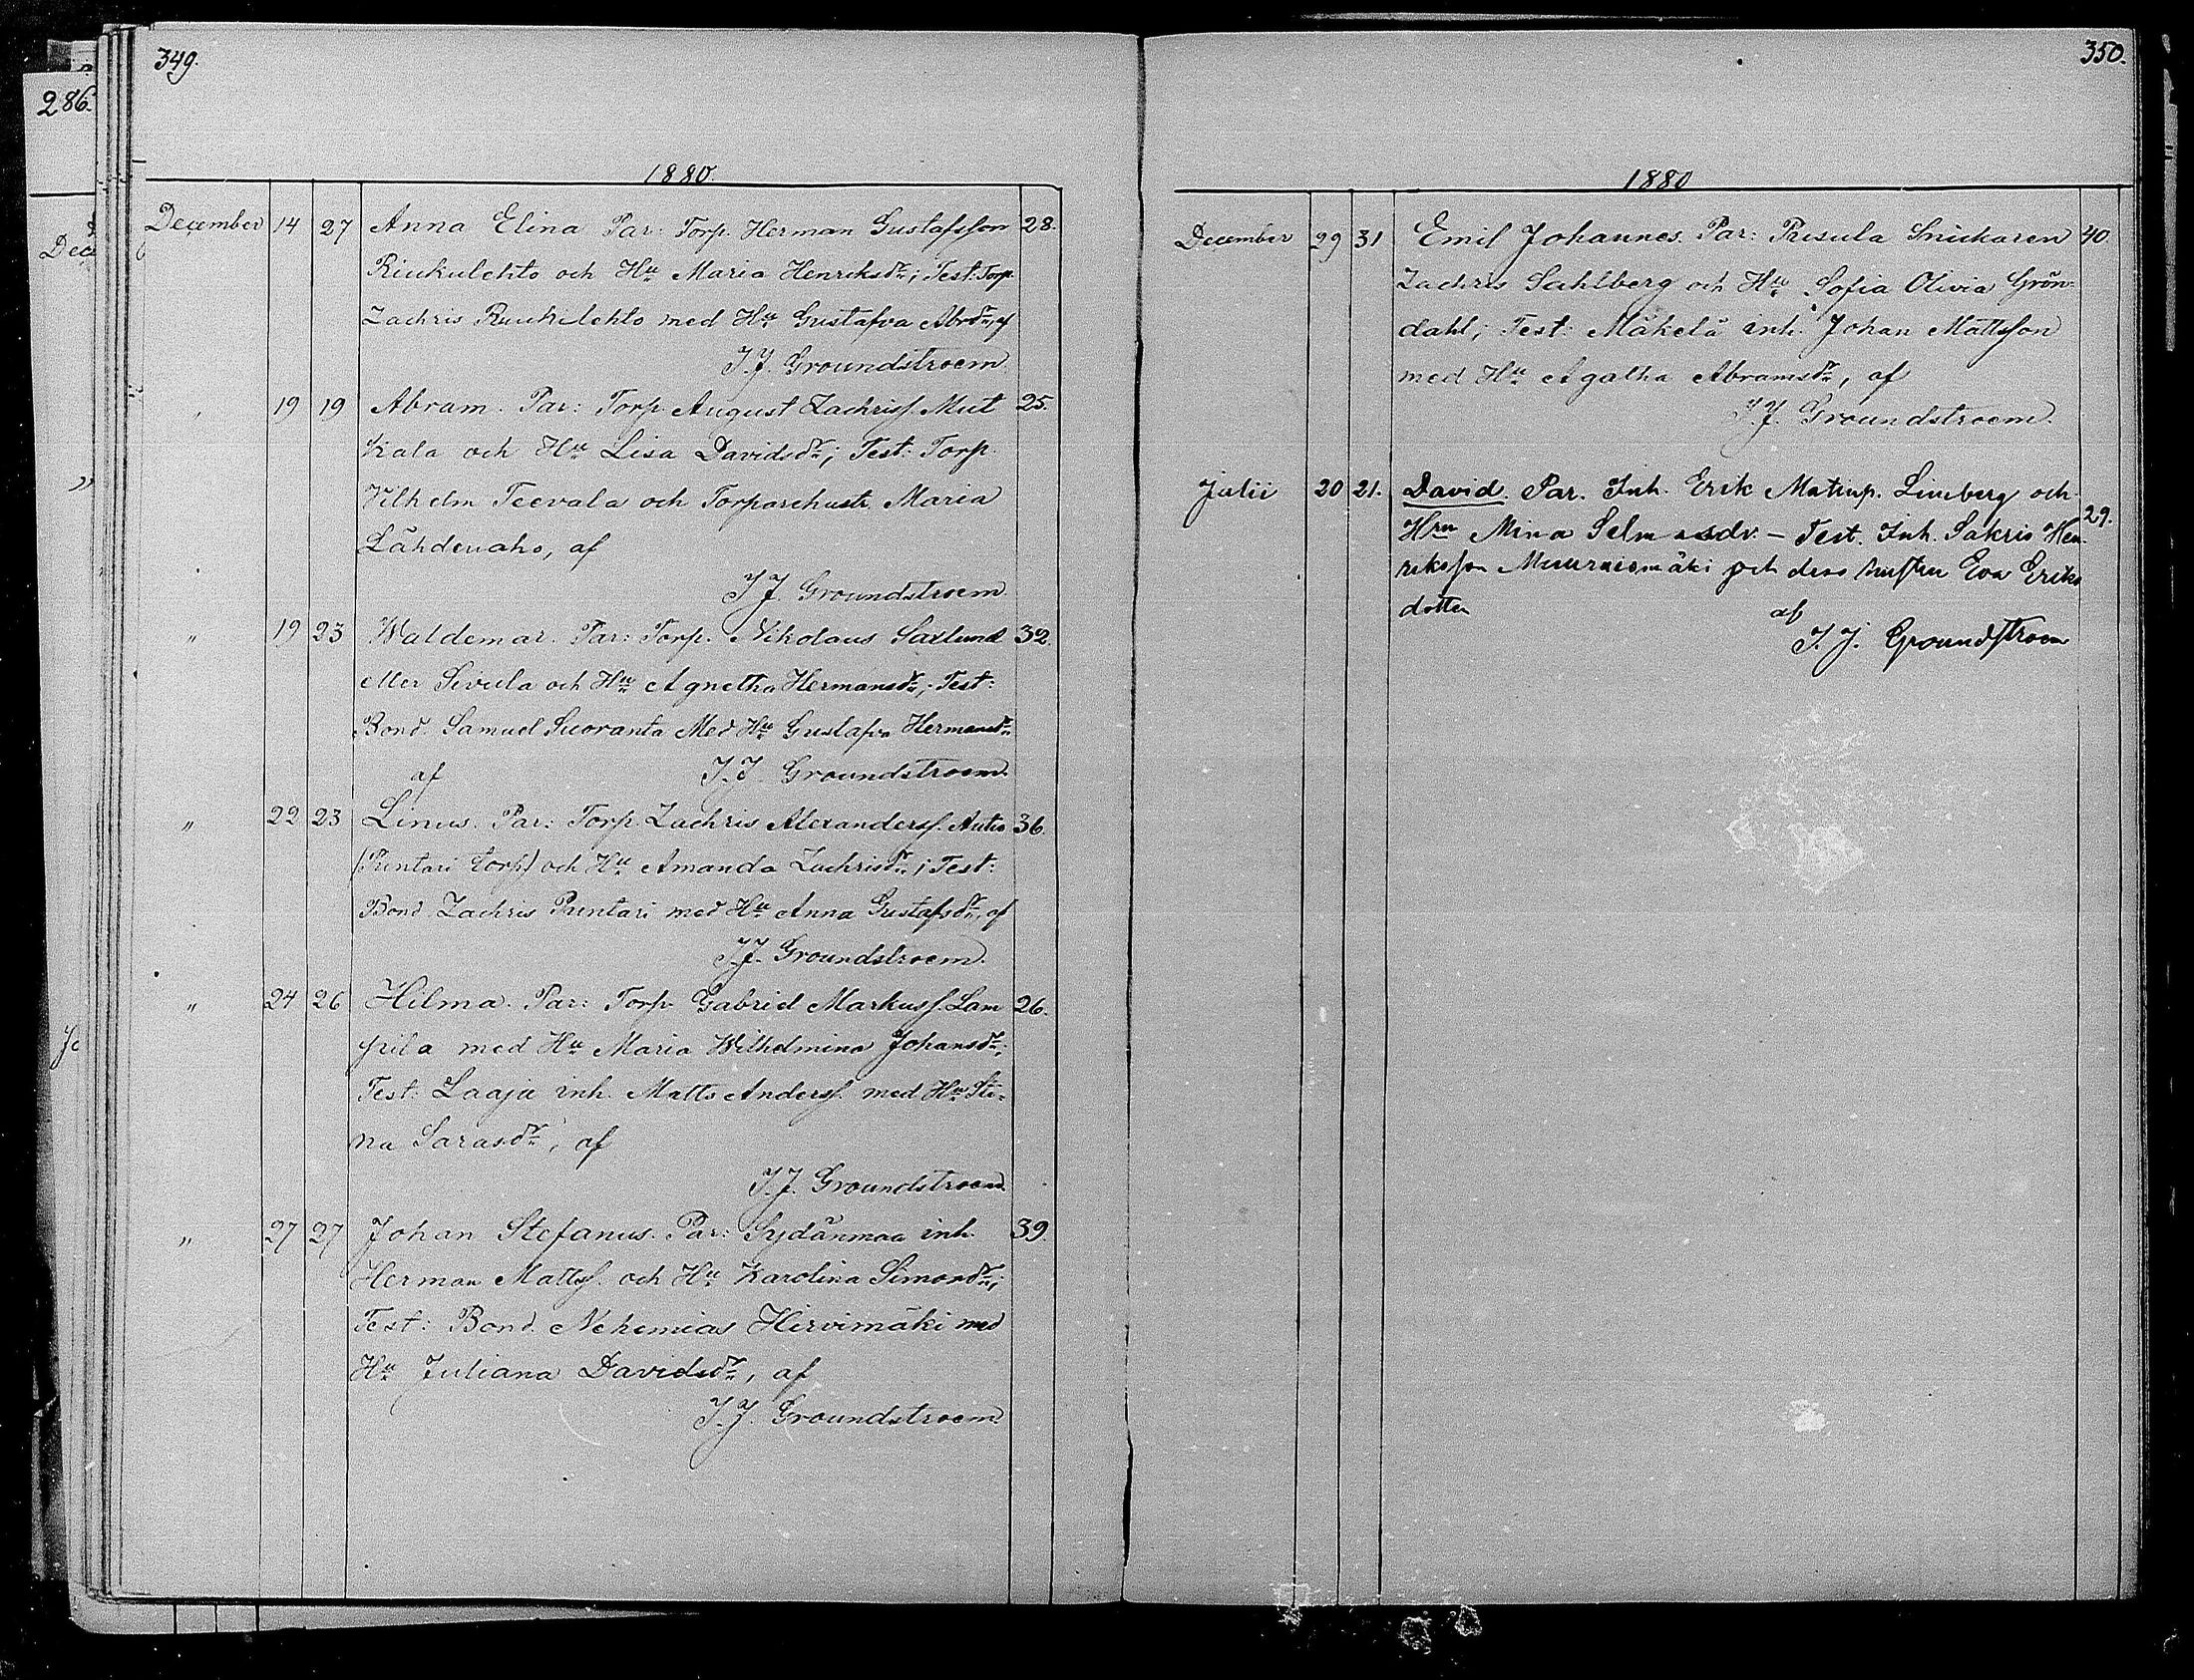 349.
286.
1880.
December 14 27 Anna Elina Par: Torp. Herman Gustafsson 28.
Riukulehto och Hu Maria Henriksdr; Test: Torp.
Zachris Riukulehto med Hu Gustafva Abrdr, af
I.J. Groundstroem
19 19 Abram. Par: Torp August Zachriss. Mut 25.
kala och Hu Lisa Davidsdr; Test: Torp.
Vilhelm Teevala och Torparehustr. Maria
Lähdenaho, af
I.J. Groundstroem
" 19 23 Waldemar. Par: Torp. Nikolaus Saxlund 32.
eller Sivula och Hu Agnetha Hermansdr; Test:
Bond. Samuel Suoranta Med Hu Gustafva Hermansdr
af I.J. Groundstroem.
" 22 23 Linus. Par: Torp. Zachris Alexanders. Autio 36.
(Puntari torp) och Hu Amanda Zachrisdr; Test:
Bond Zachris Puntari med Hu Anna Gustafsdr, af
I.J. Groundstroem.
" 24 26 Hilma. Par: Torp Gabriel Markuss. Lam 26.
pila med Hu Maria Wilhelmina Johansdr;
Test: Laaju inh. Matts Anderss. med Hu Sti-
na Sarasdr, af
I.J. Groundstroem.
" 27 27 Johan Stefanus. Par: Sydänmaa inh. 39.
Herman Mattss. och Hu Karolina Simonsdr;
Test: Bond. Nehemias Hirvimäki med
Hu Juliana Davidsdr, af
I.J. Groundstroem.
350.
1880
December 29 31 Emil Johannes. Par: Pusula Snickaren 40
Zachris Sahlberg och Hu Sofia Olivia Grön-
dahl; Test: Mäkelä inh. Johan Mattsson
med Hu Agatha Abramsdr, af
I.J. Groundstroem.
Julii 20 21. David. Par. Inh. Erik Matinp. Lineberg och
Hru Mina Selmasdr. – Test. Inh. Sakris Hen- 29.
riksson Muurniomäki och dess hustru Eva Eriks
dotter af
I.J. Groundstroem